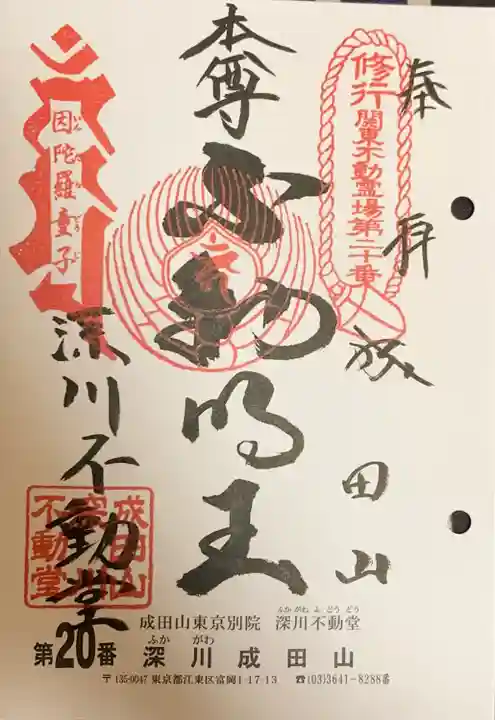 奉拝
成田山
修行
関東不動霊場第二十番
本尊
不動明王
因陀羅童子
いんだらどうじ
深川不動堂
成田山
深川
不動堂
成田山東京別院 深川不動堂
ふかがわふどうどう
第20番 深川成田山
ふかがわ
〒135-0047 東京都江東区富岡1-17-13 ☎(03)3641-8288番